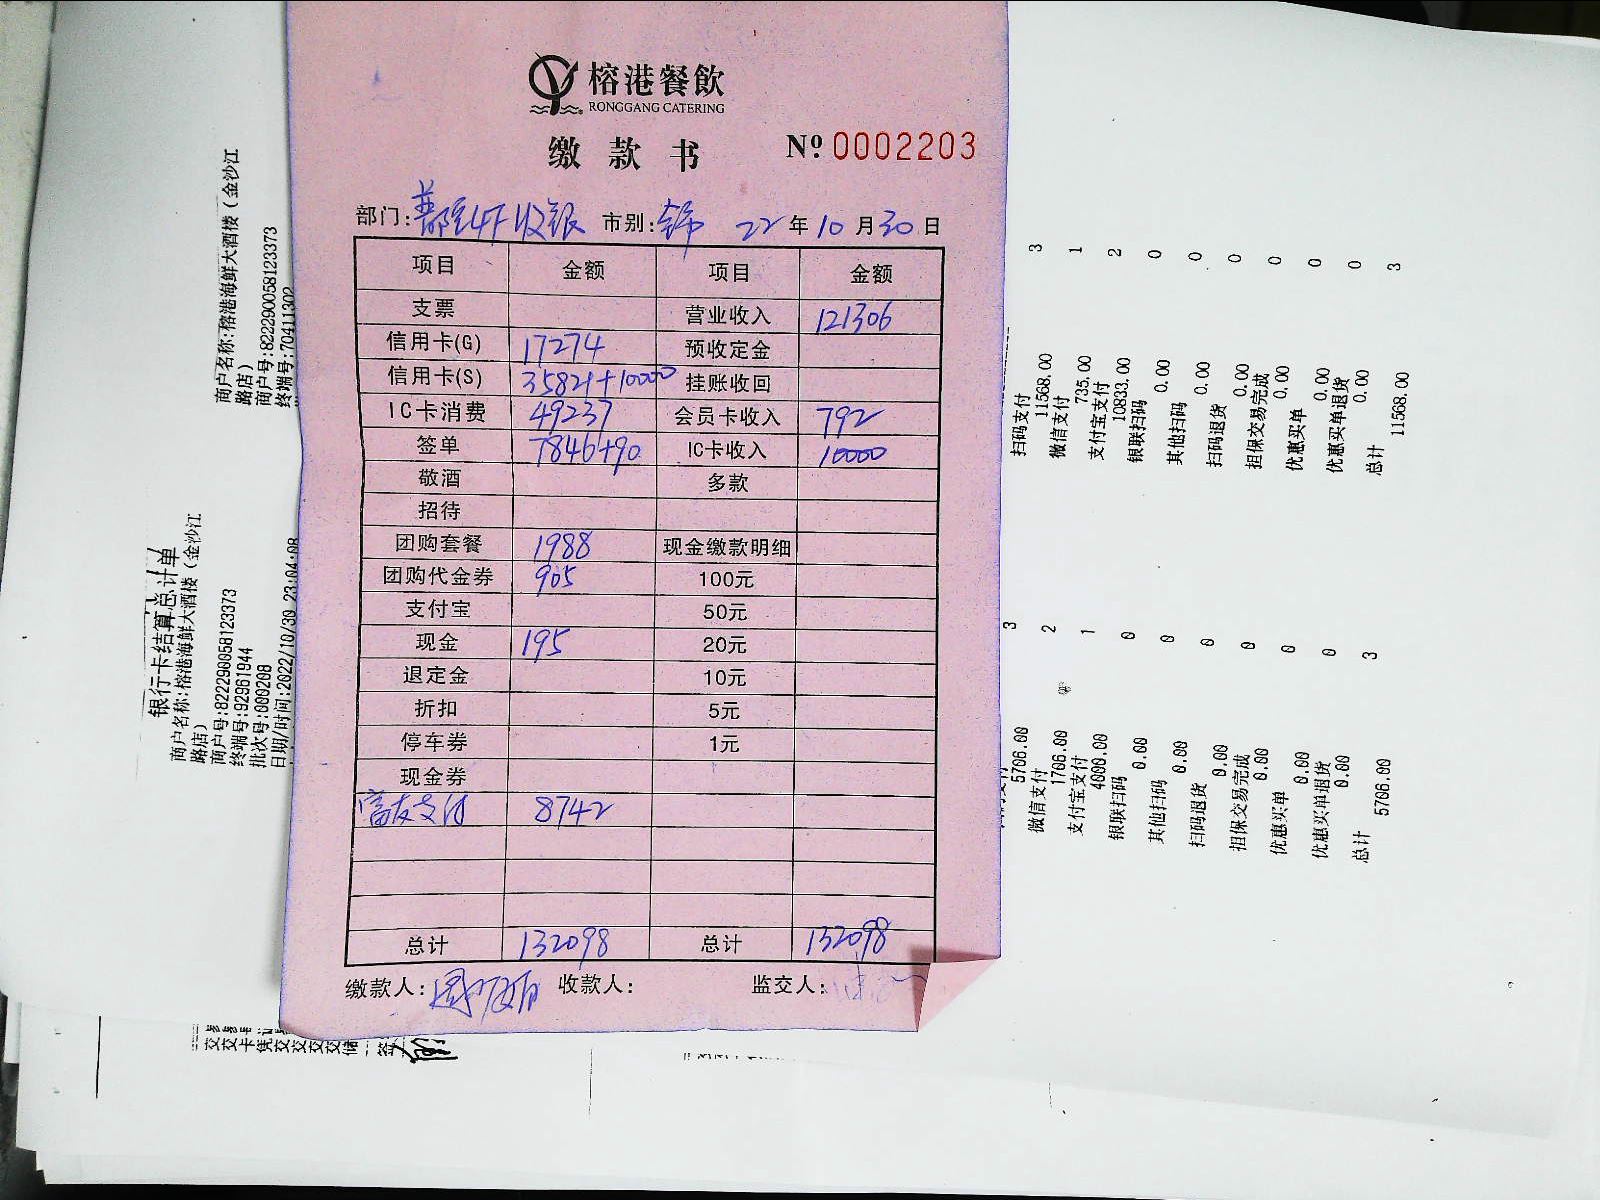 榕港餐飲
RONGGANG CATERING
缴款书 Nº 0002203
部门: 4F收银 市别: 22年10月30日
项目 金额 项目 金额
支票 营业收入 121306
信用卡(G) 17274 预收定金
信用卡(S) 35821+10000 挂账收回
IC卡消费 49237 会员卡收入 792
签单 7846+90 IC卡收入 10000
敬酒 多款
招待
团购套餐 1988 现金缴款明细
团购代金券 905 100元
支付宝 50元
现金 195 20元
退定金 10元
折扣 5元
停车券 1元
现金券
富友支付 8742
总计 132098 总计 132098
缴款人: 收款人: 监交人:
商户名称:榕港海鲜大酒楼(金沙江
路店)
商户号:822290058123373
终端号:70411302
银行卡结算总计单
商户名称:榕港海鲜大酒楼(金沙江
路店)
商户号:822290058123373
终端号:92961944
批次号:000208
日期/时间:2022/10/30 23:04:08
扫码支付 3
11568.00
微信支付 1
735.00
支付宝支付 2
10833.00
银联扫码 0
0.00
其他扫码 0
0.00
扫码退货 0
0.00
担保交易完成 0
0.00
优惠买单 0
0.00
优惠买单退货 0
0.00
总计 3
11568.00
3
5706.00
微信支付 2
1706.00
支付宝支付 1
4000.00
银联扫码 0
0.00
其他扫码 0
0.00
扫码退货 0
0.00
担保交易完成 0
0.00
优惠买单 0
0.00
优惠买单退货 0
0.00
总计 3
5706.00